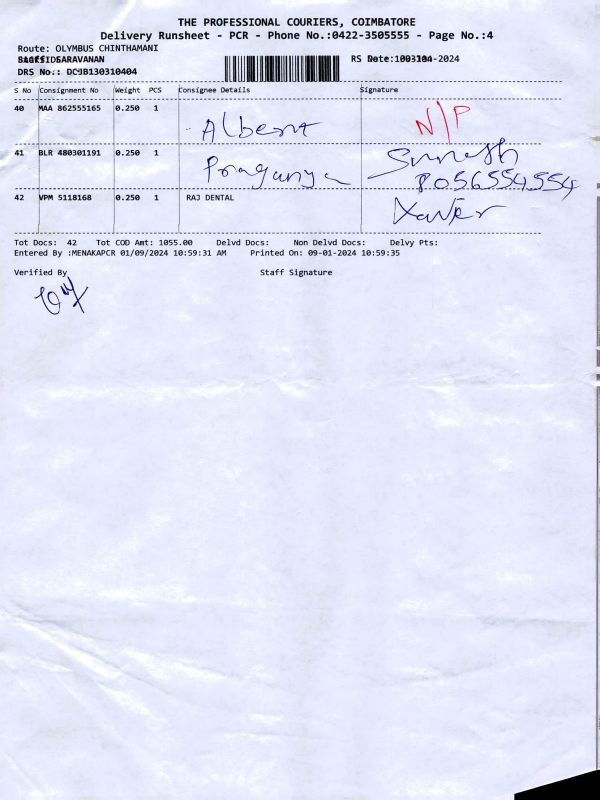 THE PROFESSIONAL COURIERS, COIMBATORE
Delivery Runsheet - PCR - Phone No.:0422-3505555 - Page No.:4
Route: OLYMBUS CHINTHAMANI
SARAVANAN
RS Date:
-2024
DRS No.:
S No Consignment No Weight PCS Consignee Details Signature
40 MAA 862555165 0.250 1 Albert N/P
41 BLR 480301191 0.250 1 Praganya Suresh
8056554554
42 VPM 5118168 0.250 1 RAJ DENTAL Xavier
Tot Docs: 42 Tot COD Amt: 1055.00 Delvd Docs: Non Delvd Docs: Delvy Pts:
Entered By :MENAKAPCR 01/09/2024 10:59:31 AM Printed On: 09-01-2024 10:59:35
Verified By Staff Signature